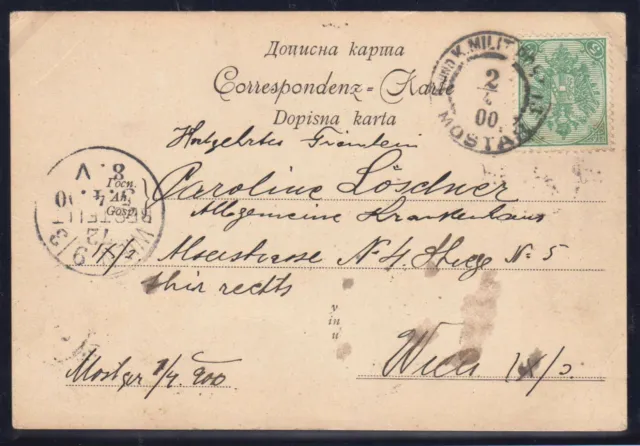 Дописна карта
Correspondenz-Karte
Dopisna karta
K. MILIT.
2
00
MOSTAR
5
Hochgehrtes Fräulein
8. V
Госп.
Gosp.
Caroline Löschner
Allgemeine Krankenhaus
IX/3
N° 4 Stiege N° 5
thür rechts
u
Wien IX/3
9/3
Mostar 2/4 900